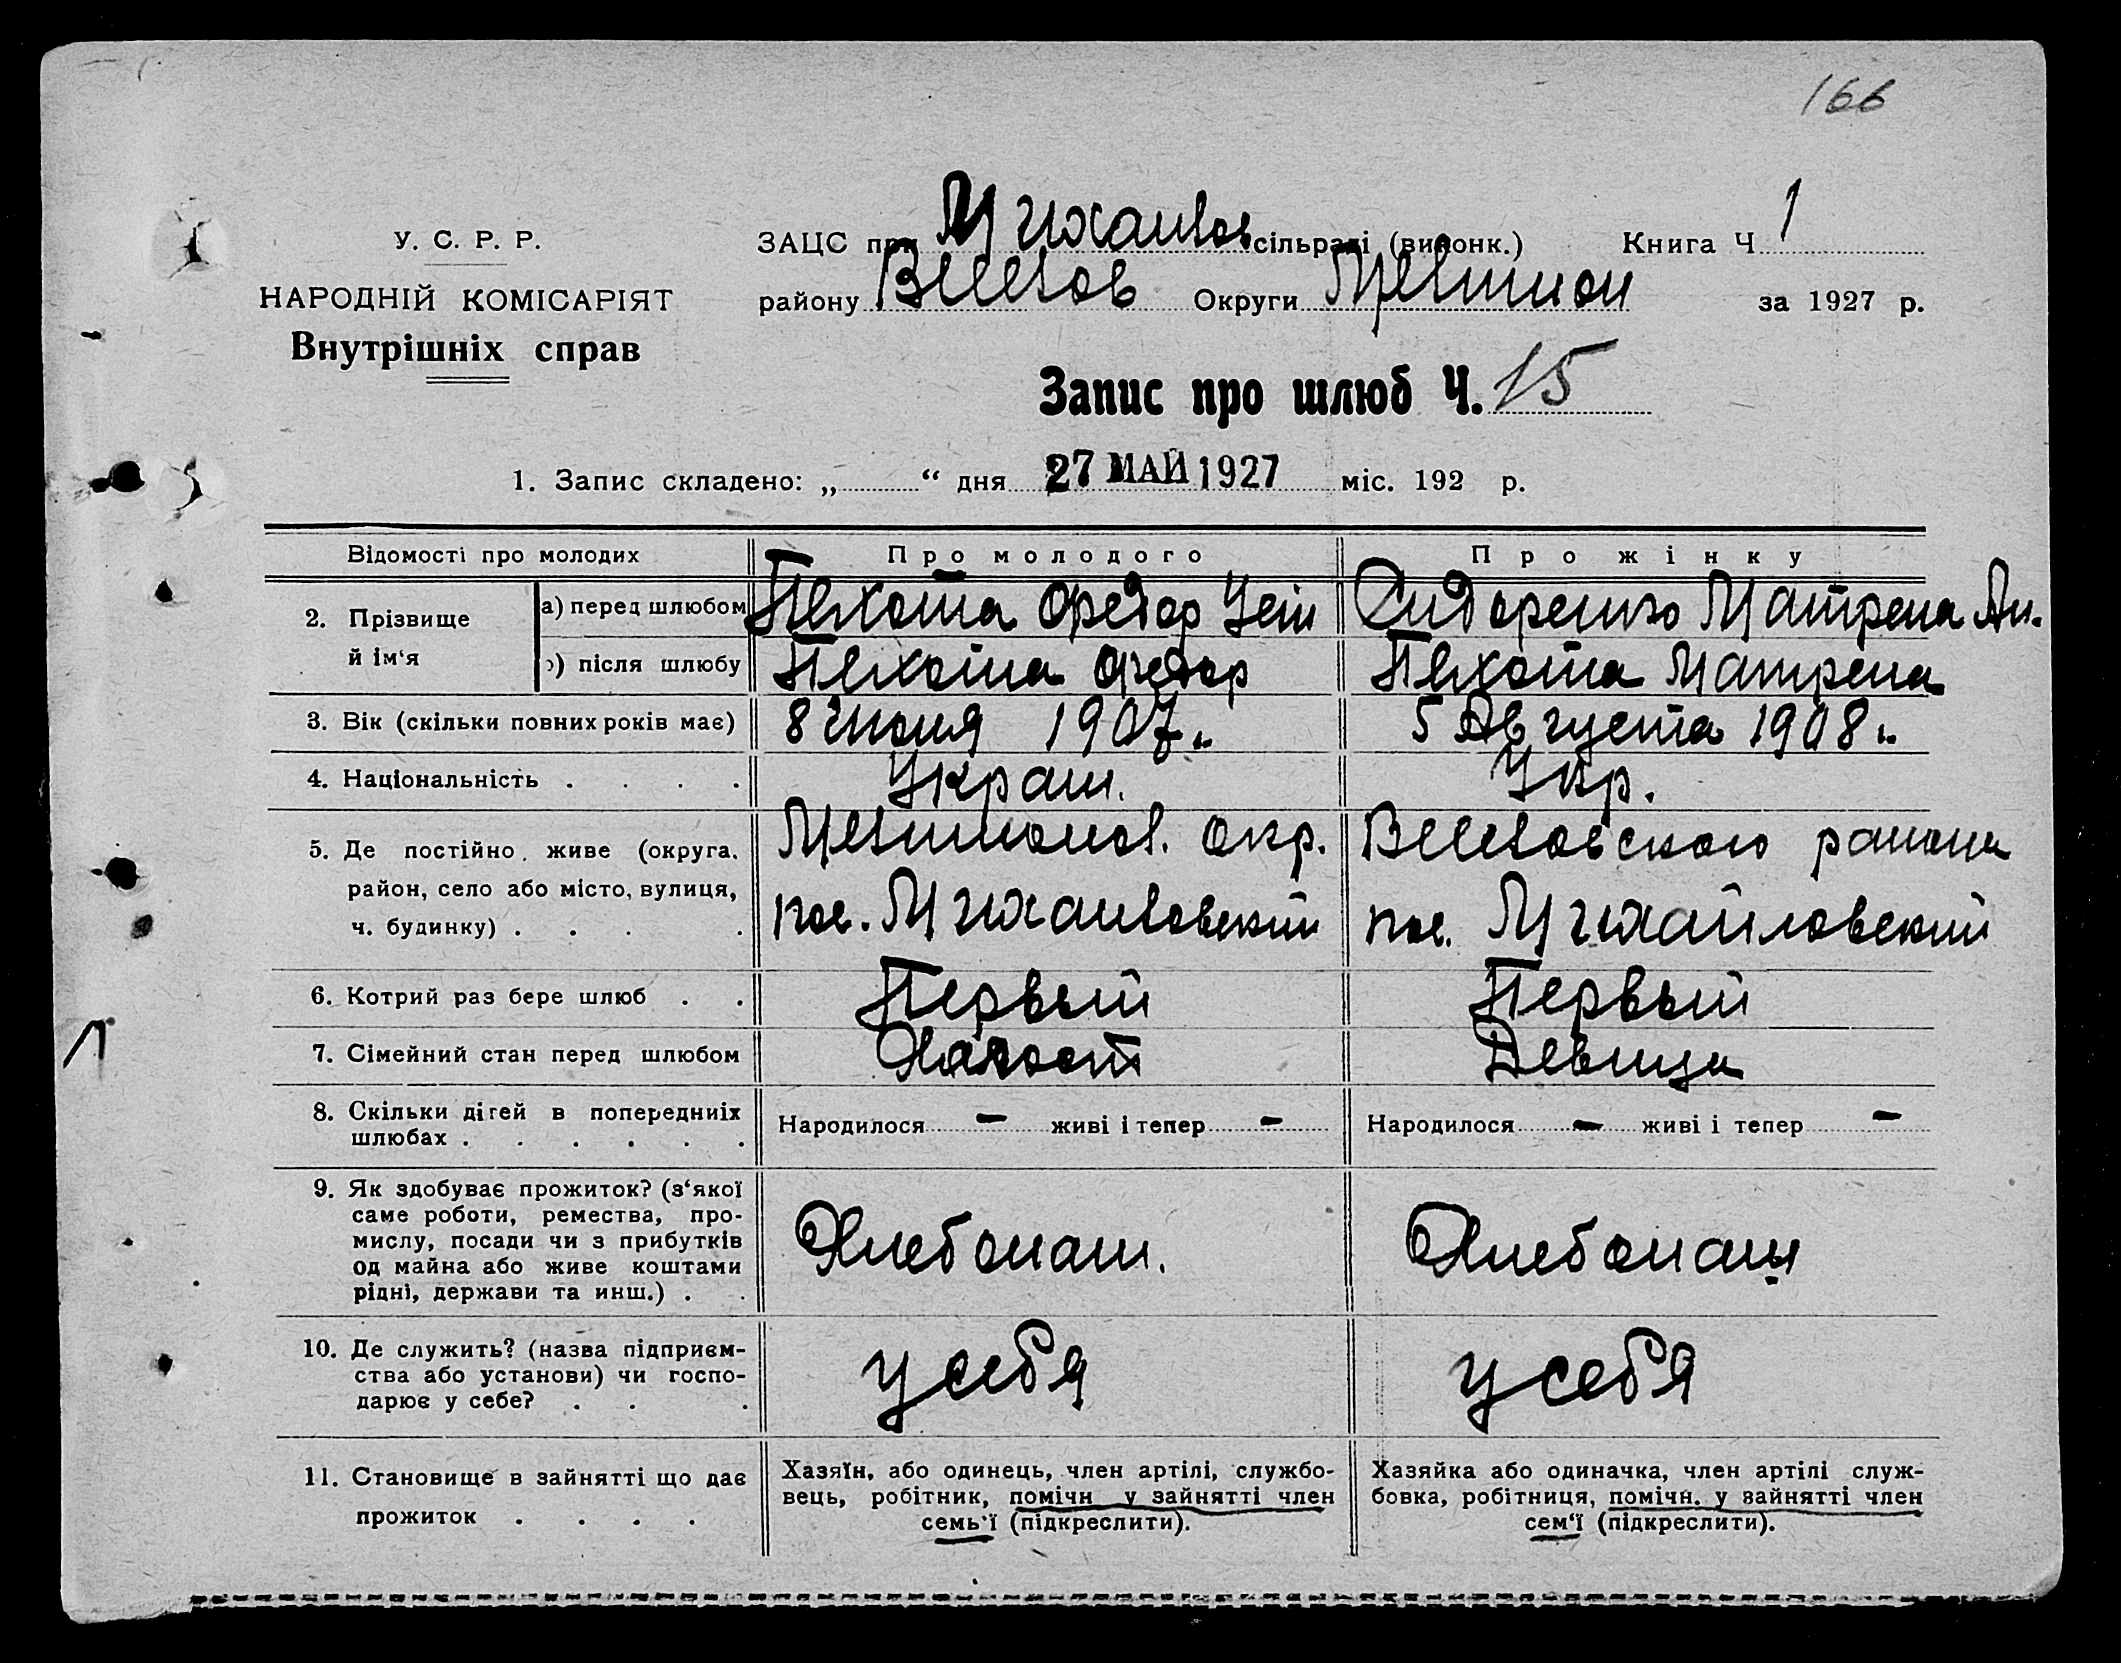 166
У. С. Р. Р.
НАРОДНІЙ КОМІСАРІЯТ
Внутрішніх справ
ЗАЦС при Михайлов сільраді (виконк.) Книга Ч 1
району Веселов Округи Мелитоп за 1927 р.
Запис про шлюб Ч. 15
1. Запис складено: „ “ дня 27 МАЙ 1927 міс. 192 р.
Відомості про молодих Про молодого Про жінку
2. Прізвище й ім‘я
а) перед шлюбом Пехота Федор Сидоренко Матрена Ан.
б) після шлюбу Пехота Федор Пехота Матрена
3. Вік (скільки повних років має) 8 Июня 1907 г. 5 Августа 1908 г.
4. Національність . . . . Украин. Укр.
5. Де постійно живе (округа, район, село або місто, вулиця, ч. будинку) . . . .
Мелитопол. окр. Веселовского района
пос. Михайловский пос. Михайловский
6. Котрий раз бере шлюб . . Первый Первый
7. Сімейний стан перед шлюбом Холост Девица
8. Скільки дітей в попередниіх шлюбах . . . . . . Народилося - живі і тепер - Народилося - живі і тепер -
9. Як здобуває прожиток? (з‘якої саме роботи, ремества, промислу, посади чи з прибутків од майна або живе коштами рідні, держави та инш.) . .
Хлебопаш. Хлебопаш
10. Де служить? (назва підприємства або установи) чи господарює у себе? . . .
у себя у себя
11. Становище в зайнятті що дає прожиток . . . .
Хазяїн, або одинець, член артілі, службовець, робітник, помічн у зайнятті член семь‘ї (підкреслити).
Хазяйка або одиначка, член артілі службовка, робітниця, помічн. у зайнятті член сем‘ї (підкреслити).